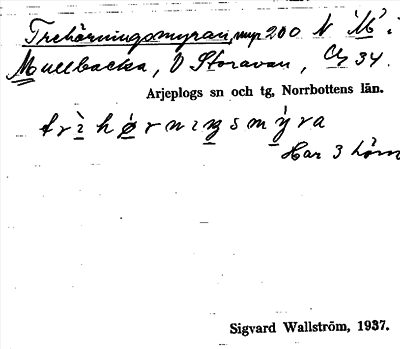 Trehörningsmyran, myr 200 N "M" i
Mullbacka, V Storavan, 34.
Arjeplogs sn och tg, Norrbottens län.
trìhørnıŋsmỳra
Har 3 hörn
Sigvard Wallström, 1937.